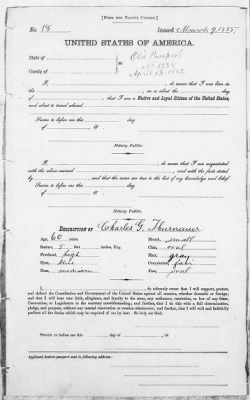 [FORM FOR NATIVE CITIZEN.]
No. 18 Issued March 9, 1885
UNITED STATES OF AMERICA.
State of
County of
Old Passport
April 13, 1882
I, do swear that I was born in
the , on or about the day
of , that I am a Native and Loyal Citizen of the United States,
and about to travel abroad.
Sworn to before me this day
of , 18 .
Notary Public.
I, do swear that I am acquainted
with the above-named and with the facts stated
by and that the same are true to the best of my knowledge and belief.
Sworn to before me this day
of , 18 .
Notary Public.
DESCRIPTION OF Charles G. Thurnauer
Age, 60 years Mouth, small
Stature, 5 feet inches, Eng. Chin, oval
Forehead, high Hair, gray
Eyes, blue Complexion, fair
Nose, medium Face, oval
I, do solemnly swear that I will support, protect,
and defend the Constitution and Government of the United States against all enemies, whether domestic or foreign;
and that I will bear true faith, allegiance, and loyalty to the same, any ordinance, resolution, or law of any State,
Convention, or Legislature to the contrary notwithstanding; and further, that I do this with a full determination,
pledge, and purpose, without any mental reservation or evasion whatsoever; and further, that I will well and faithfully
perform all the duties which may be required of me by law: So help me God.
Sworn to before me this day of , 18
Applicant desires passport sent to following address: